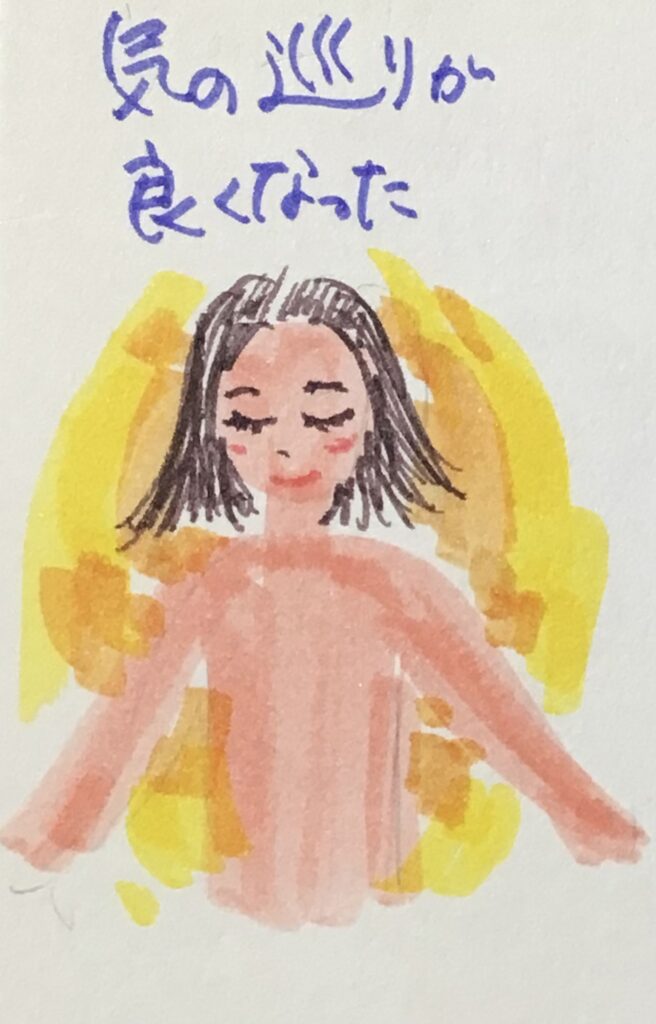 気の巡りが
良くなった